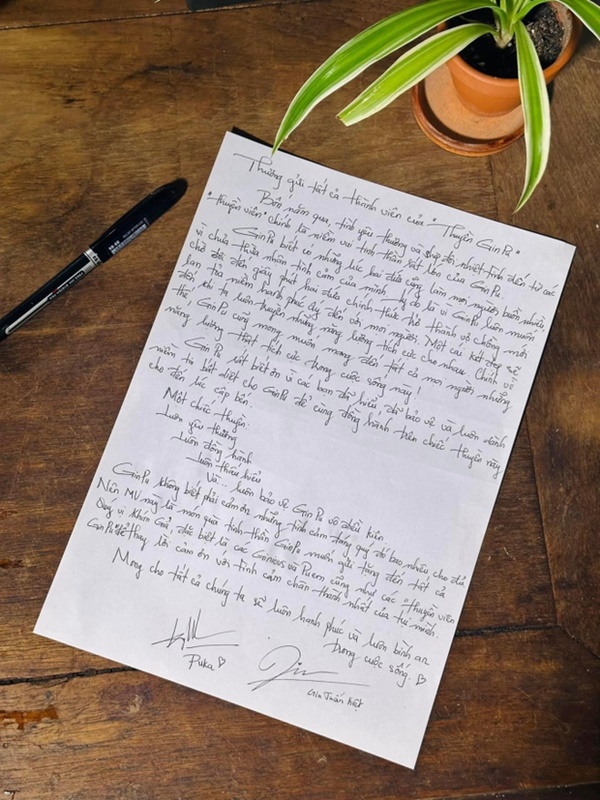 Thương gửi tất cả thành viên của "Thuyền GinPu"
Bốn năm qua, tình yêu thương và sự đón nhiệt tình đến từ các
"thuyền viên" chính là niềm vui tinh thần rất lớn của GinPu.
GinPu biết có những lúc hai đứa cũng làm mọi người buồn nhiều
vì chưa thừa nhận tình cảm của mình. Lý do là vì GinPu luôn muốn
chờ đợi đến giây phút hai đứa chính thức trở thành vợ chồng mới
lan tỏa niềm hạnh phúc ấy đến với mọi người. Một cái kết đẹp sẽ
đợi khi ta luôn truyền những năng lượng tích cực cho nhau. Chính vì
thế, GinPu cũng mong muốn mang đến tất cả mọi người những
năng lượng thật tích cực trong cuộc sống này!
GinPu rất biết ơn vì các bạn đã hiểu, đã bảo vệ và luôn dành
niềm tin bất diệt cho GinPu để cùng đồng hành trên chiếc thuyền này
cho đến lúc cập bến.
Một chiếc thuyền:
Luôn yêu thương
Luôn đồng hành
Luôn thấu hiểu
Và... luôn bảo vệ GinPu vô điều kiện
GinPu không biết phải cảm ơn những tình cảm đáng quý đó bao nhiêu cho đủ
Nên MV này là món quà tinh thần GinPu muốn gửi tặng đến tất cả
Quý vị khán Giả, đặc biệt là các Ginious và Puem cũng như các "thuyền viên
GinPu" để thay lời cảm ơn với tình cảm chân thành nhất của tụi mình.
Mong cho tất cả chúng ta sẽ luôn hạnh phúc và luôn bình an
trong cuộc sống. ♡
Puka ♡
Gin Tuấn Kiệt